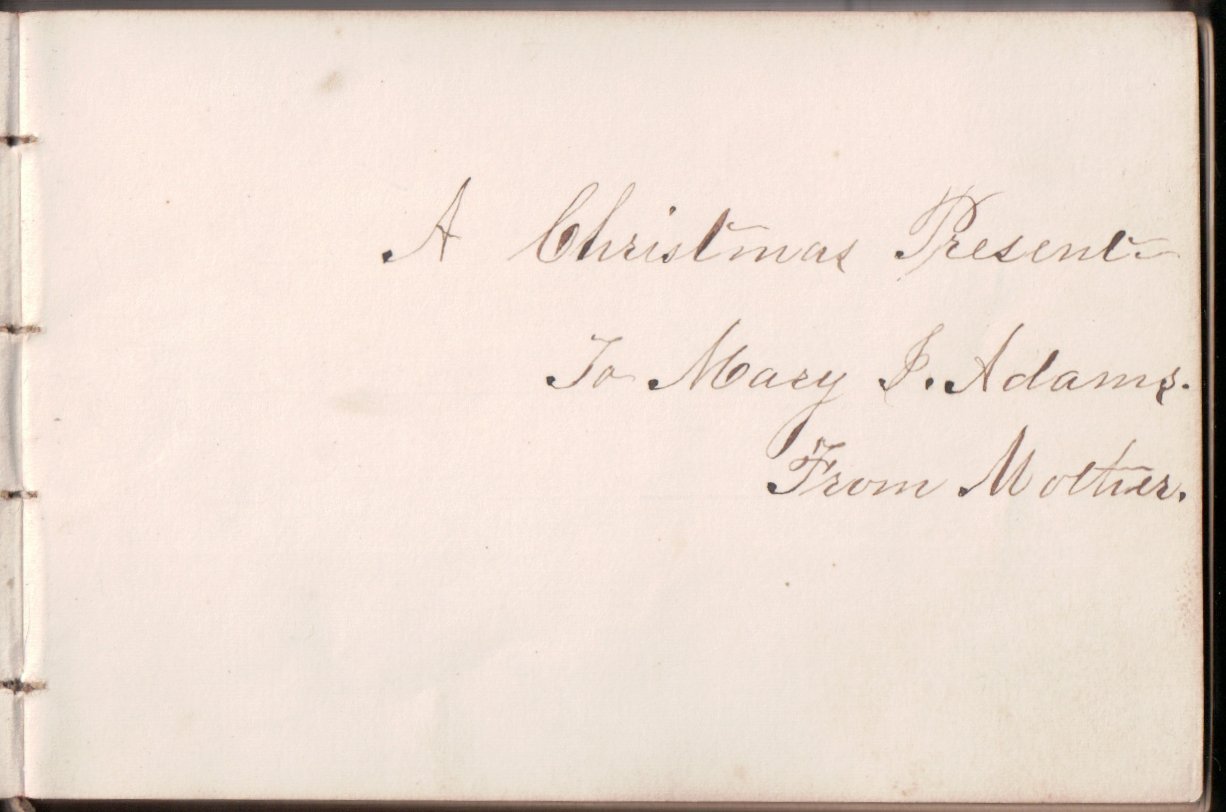 A Christmas Present
To Mary I. Adams.
From Mother.